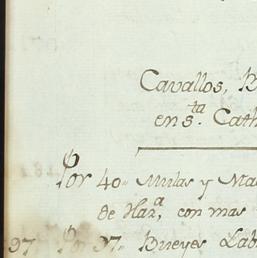 Cavallos, B
en S.ta Cath
Por 40 Mulas y Ma
de Haz.a, con mas
97 Por 97 Bueyes Lab